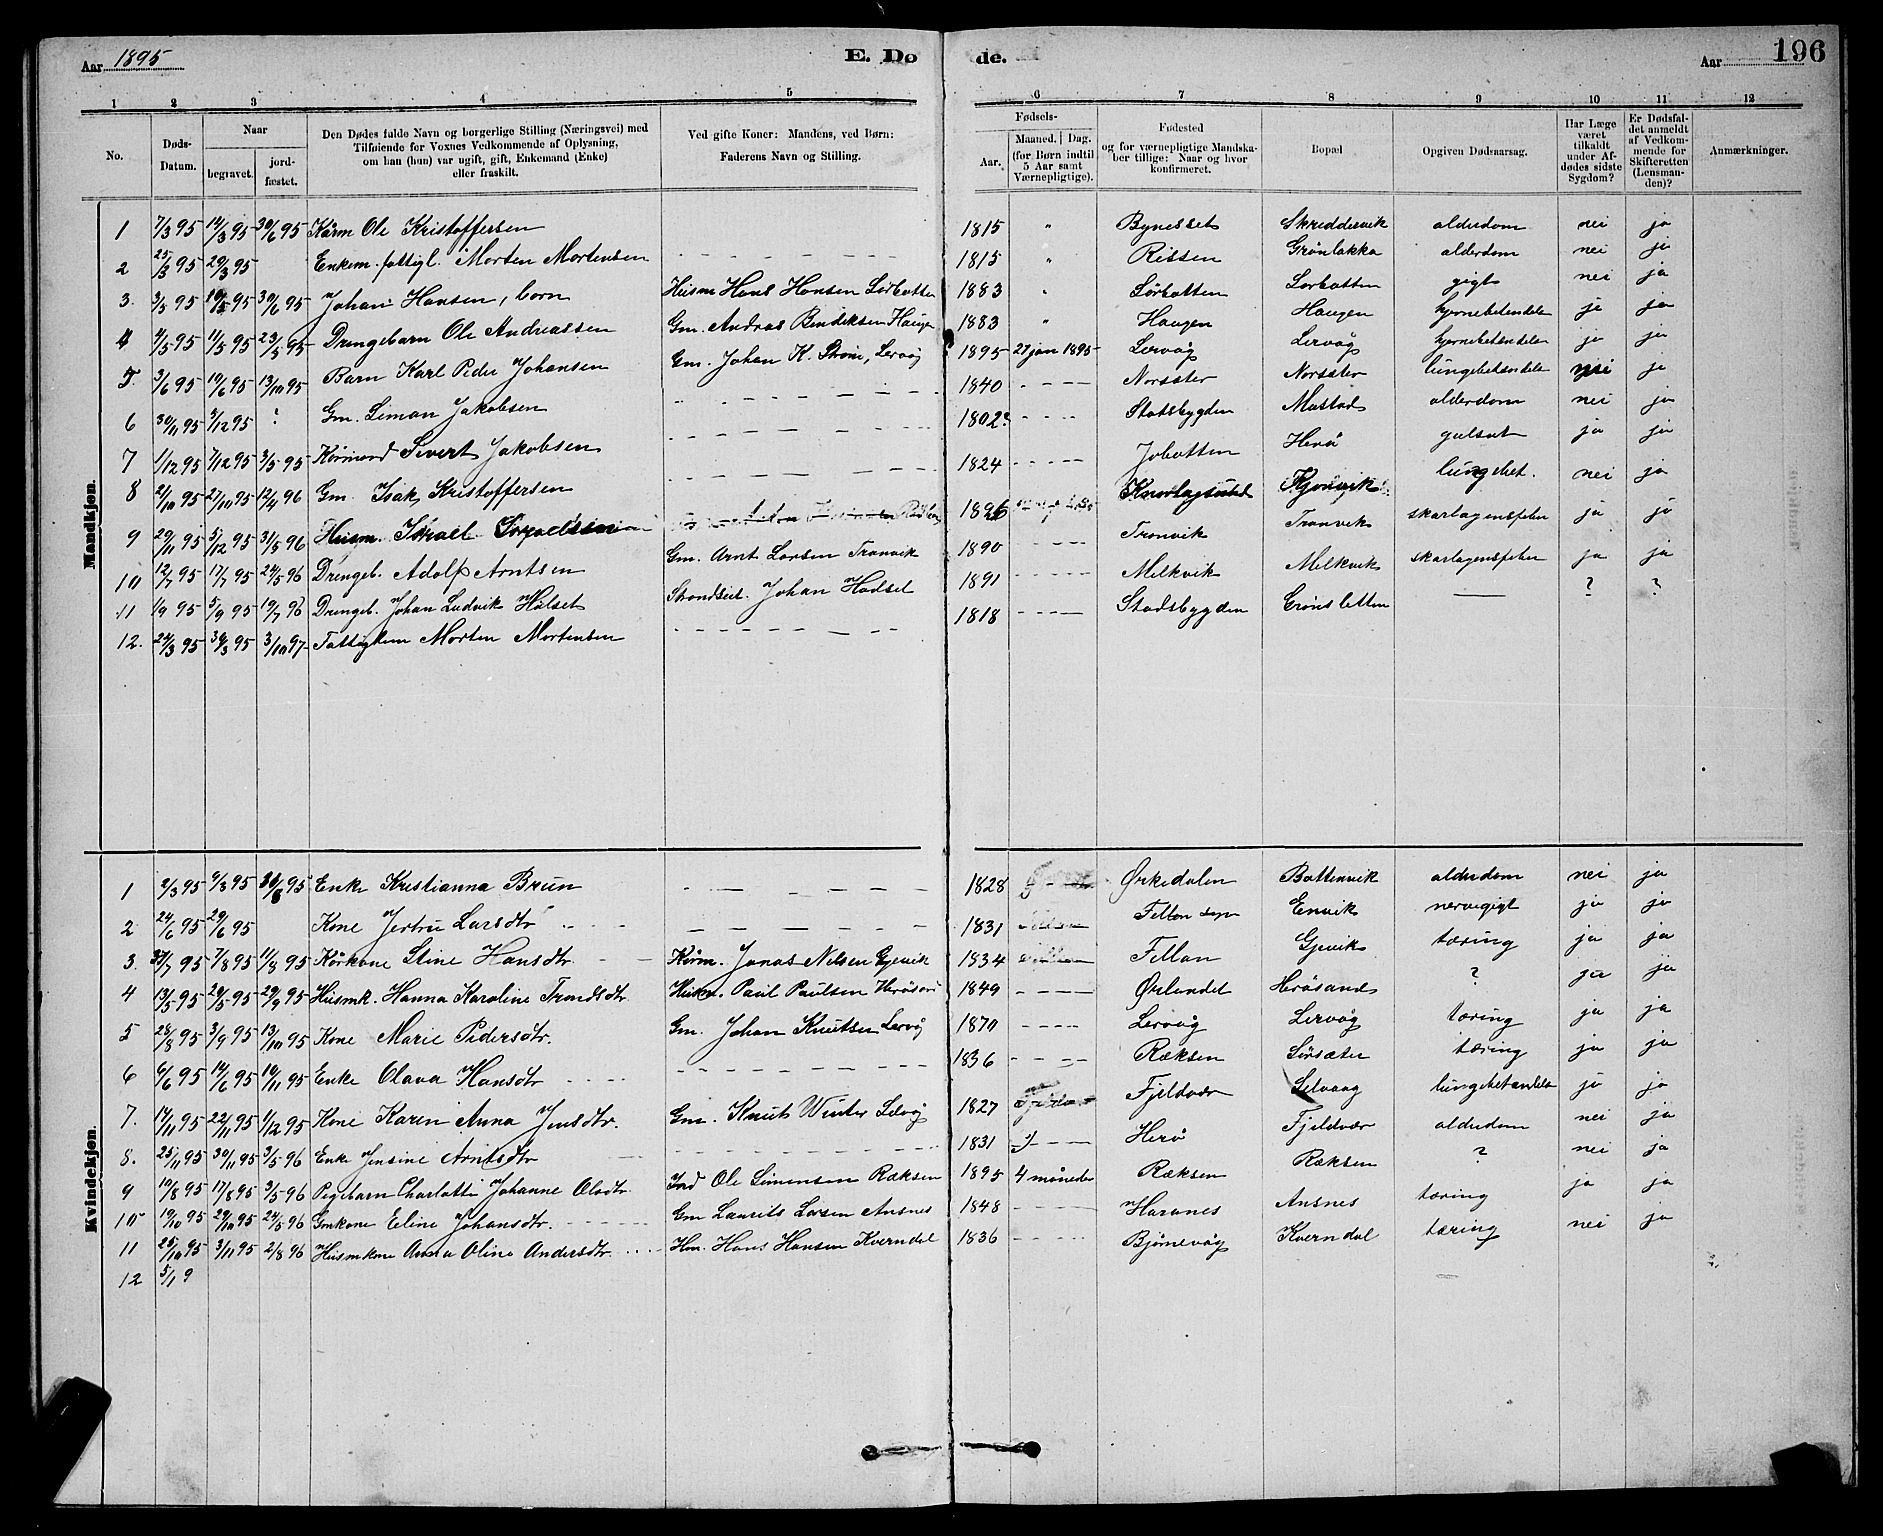 Aar 1895
E. Dø
de.
Aar
196
1 2 3 4 5 6 7 8 9 10 11 12
No.
Døds-Datum.
Naar
begravet.
jord-fæstet.
Den Dødes fulde Navn og borgerlige Stilling (Næringsvei) med
Tilføiende for Voxnes Vedkommende af Oplysning,
om han (hun) var ugift, gift, Enkemand (Enke)
eller fraskilt.
Ved gifte Koner: Mandens, ved Børn:
Faderens Navn og Stilling.
Fødsels-
Aar.
Maaned. Dag.
(for Børn indtil
5 Aar samt
Værnepligtige).
Fødested
og for værnepligtige Mandska-
ber tillige: Naar og hvor
konfirmeret.
Bopæl
Opgiven Dødsaarsag.
Har Læge
været
tilkaldt
under Af-
dødes sidste
Sygdom?
Er Dødsfal-
det anmeldt
af Vedkom-
mende for
Skifteretten
(Lensman-
den)?
Anmærkninger.
Mandkjøn.
1 7/3 95 14/3 95 30/6 95 Kårm Ole Kristoffersen 1815 " Bynesset Skreddervik alderdom nei ja
2 25/3 95 29/3 95 Enkem. fattigl. Morten Mortensen 1815 " Rissen Grønlakka alderdom nei ja
3. 3/5 95 10/5 95 30/6 95 Johan Hansen, barn Husm Hans Hansen Sørbotten 1883 " Sørbotten Sorbotten gigt nei ja
4 4/5 95 11/5 95 23/5 95 Drengebarn Ole Andreassen Gm. Andras Bendiksen Haugen 1883 " Haugen Haugen hjernebetendelse ja ja
5 3/6 95 10/6 95 13/10 95 Barn Karl Peder Johansen Gm. Johan K. Lervåg 1895 27 jan 1895 Lervåg Lervåg hjernebetendelse ja ja
6 30/11 95 3/12 95 ? Gm. Simon Jakobsen 1840 Norsæter Norsæter lungebetendelse nei ja
7 1/12 95 7/12 95 3/5 95 Kårmand Sivert Jakobsen 1802? Stadsbygden Mastad alderdom nei ja
8 21/10 95 27/10 95 12/4 96 Gm. Isak Kristoffersen 1824 Jobotten Herø gulsot ja ja
9 29/11 95 5/12 95 31/5 96 Husm. Israel 1826 Kjørvik lungebet. nei ja
10 12/7 95 17/7 95 24/5 96 Drengeb. Adolf Arntsen Gm. Arnt Larsen Tranvik 1890 Tranvik Tranvik skarlagensfeber ja ja
11 1/9 95 5/9 95 19/7 96 Drengeb. Johan Ludvik Halset Strandsid. Johan Hadsel 1891 Melkvik Melkvik skarlagensfeber ja ja
12. 24/3 95 30/3 95 3/10 97 Fattiglem Morten Mortensen 1818 Stadsbygden Grønsletten ? ?
Kvindekjøn.
1 2/3 95 9/3 95 30/6 95 Enke Kristianna Brun 1828 Ørkedalen Bottenvik alderdom nei ja
2 24/6 95 29/6 95 Kone Jertru Larsdtr 1831 Fellan Envik nervegigt ja ja
3. 31/7 95 7/8 95 11/8 95 Kårkone Stine Hansdtr. Kårm. Jonas Nilsen Gjevik 1834 Fellan Gjevik tæring ja ja
4 13/5 95 20/5 95 29/9 95 Husmk. Hanna Karoline Trondsdtr Husm. Paul Paulsen Herøsand 1849 Ørlandet Herøsand ? ja ja
5 28/8 95 3/9 95 13/10 95 Kone Marie Pedersdtr. Gm. Johan Knutsen Lervåg 1870 Lervåg Lervåg tæring ja ja
6 6/6 95 10/6 95 10/11 95 Enke Olava Hansdtr 1836 Ræksen Sørsæter tæring ja ja
7. 14/11 95 22/11 95 1/12 95 Kone Karen Anna Jensdtr. Gm. Knut Winter Selvåg 1827 Fjeldvær Selvaag lungebetendelse ja ja
8. 25/11 95 30/11 95 3/5 96 Enke Jensine Arntsdtr 1831 Herø Fjeldvær alderdom nei ja
9 10/8 95 17/8 95 3/5 96 Pigebarn Charlotte Johanne Olsdtr. Ole Simonsen Ræksen 1895 4 måneder Ræksen Ræksen ? nei ja
10 19/10 95 29/10 95 24/5 96 Gmkone Eline Johansdtr. Gm Laurits Larsen Ansnes 1848 Haranes Ansnes tæring ja ja
11 25/10 95 3/11 95 2/8 96 Husmkone Anna Olina Andersdtr. Hm. Hans Hansen Kverndal 1836 Bjørnevåg Kverndal tæring nei ja
12 5/1 9